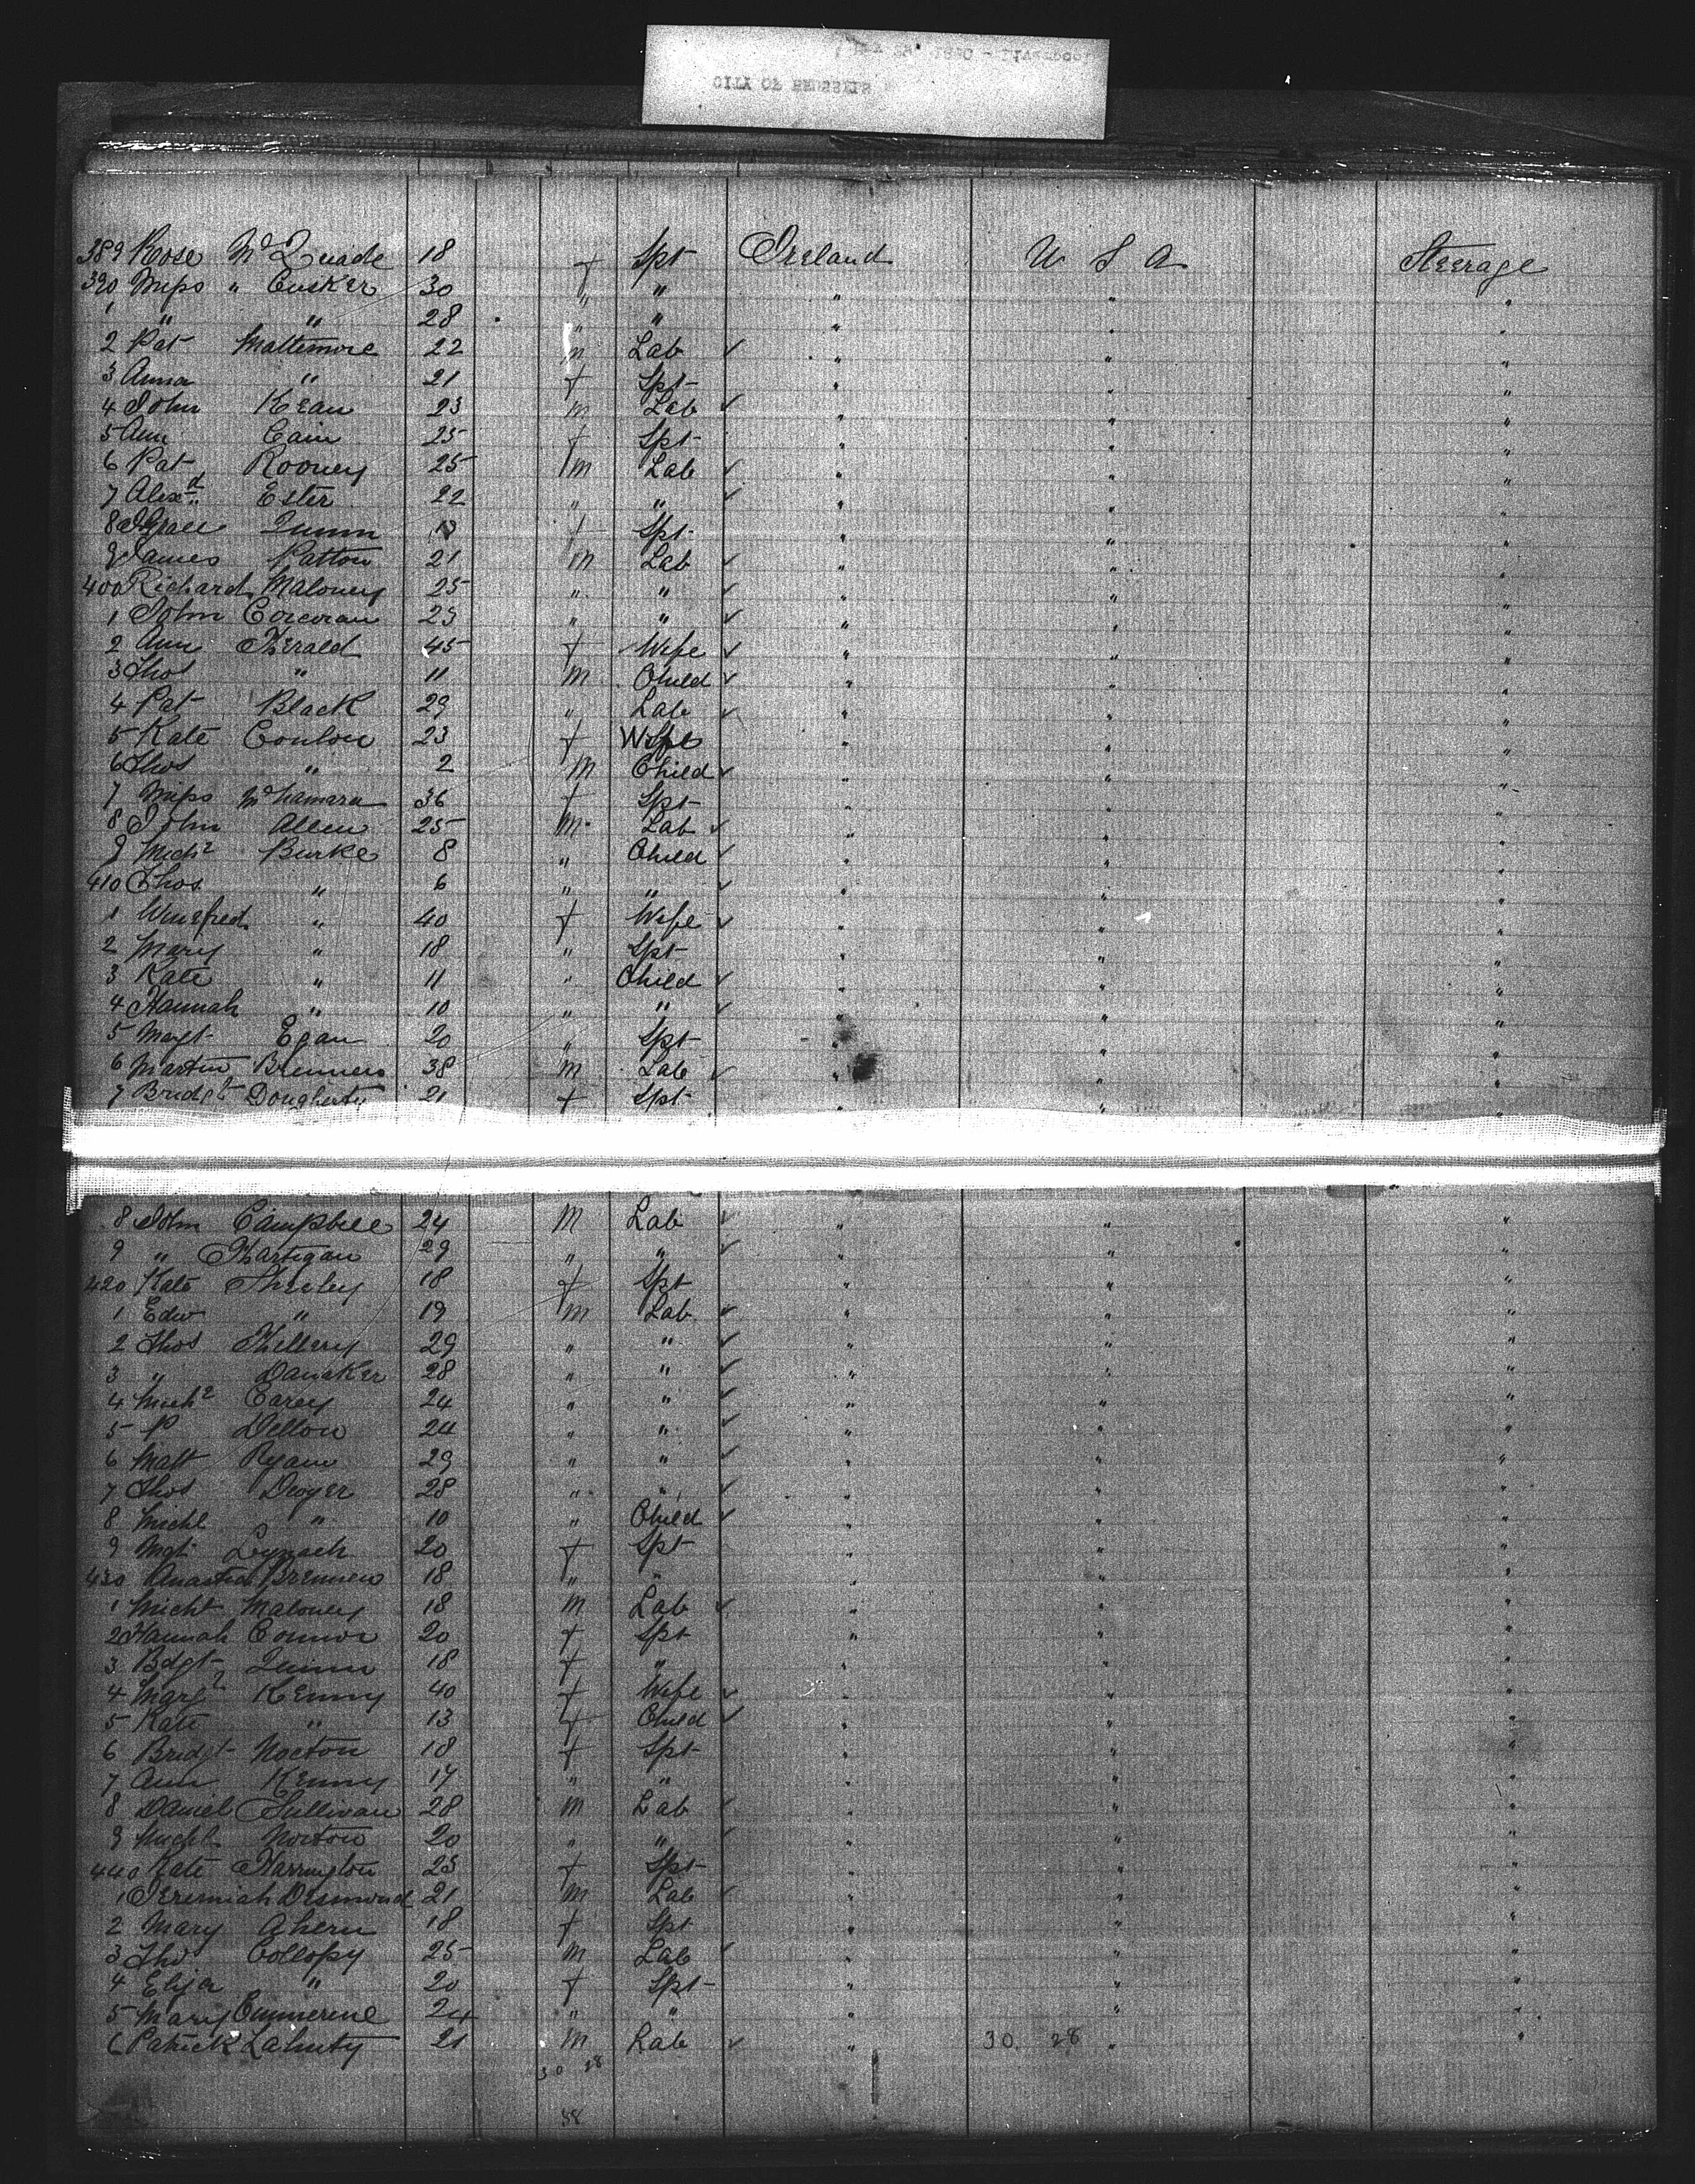 389 Rose McQuade 18 f Spt Ireland U S A Steerage
390 Miss " Cusker 30 " " " " "
1 " " 28 " " " " "
2 Pat Mattimore 22 m Lab ✓ " " "
3 Anna " 21 f Spt " " "
4 John Kean 23 m Lab ✓ " " "
5 Ann Cain 25 f Spt " " "
6 Pat Rooney 25 m Lab ✓ " " "
7 Alexd Ester 22 " " ✓ " " "
8 Grace Quinn f Spt " " "
9 James Patton 21 m Lab ✓ " " "
400 Richard Maloney 25 " " ✓ " " "
1 John Corcoran 23 " " ✓ " " "
2 Ann Fherald 45 f Wife ✓ " " "
3 Thos " 11 m Child ✓ " " "
4 Pat Black 29 " Lab ✓ " " "
5 Kate Conlon 23 f Wife " " "
6 Thos " 2 m Child ✓ " " "
7 Miss McNamara 36 f Spt " " "
8 John Allen 25 m Lab ✓ " " "
9 Michl Burke 8 " Child ✓ " " "
410 Thos " 6 " " ✓ " " "
1 Winefred " 40 f Wife ✓ " " "
2 Mary " 18 " Spt " " "
3 Kate " 11 " Child ✓ " " "
4 Hannah " 10 " " ✓ " " "
5 Margt Egan 20 " Spt " " "
6 Martin Brennen 38 m Lab ✓ " " "
7 Bridgt Dougherty 21 f Spt " " "
8 John Campbell 24 m Lab ✓ " " "
9 " Hartigan 29 " " ✓ " " "
420 Kate Sheeley 18 f Spt " " "
1 Edw " 19 m Lab ✓ " " "
2 Thos Kellery 29 " " ✓ " " "
3 " Danaker 28 " " ✓ " " "
4 Michl Carey 24 " " ✓ " " "
5 P Dellon 24 " " ✓ " " "
6 Matt Ryan 29 " " ✓ " " "
7 Thos Dwyer 28 " " ✓ " " "
8 Michl " 10 " Child ✓ " " "
9 Mgt Lynach 20 f Spt " " "
430 Anastia Brennen 18 " " " " "
1 Michl Maloney 18 m Lab ✓ " " "
2 Hannah Connor 20 f Spt " " "
3 Bdgt Quinn 18 f " " " "
4 Margt Kenny 40 f Wife ✓ " " "
5 Kate " 13 f Child ✓ " " "
6 Bridgt Nocton 18 f Spt " " "
7 Ann Kenny 17 " " " " "
8 Daniel Sullivan 28 m Lab ✓ " " "
9 Michl Norton 20 " " ✓ " " "
440 Kate Harrington 23 f Spt " " "
1 Jeremiah Desmond 21 m Lab ✓ " " "
2 Mary Ahern 18 f Spt " " "
3 Tho Collopy 25 m Lab ✓ " " "
4 Eliza " 20 f Spt " " "
5 Mary Cummerine 24 " " " " "
6 Patrick Lahuty 21 m Lab ✓ " 30 28 " "
30 28
58